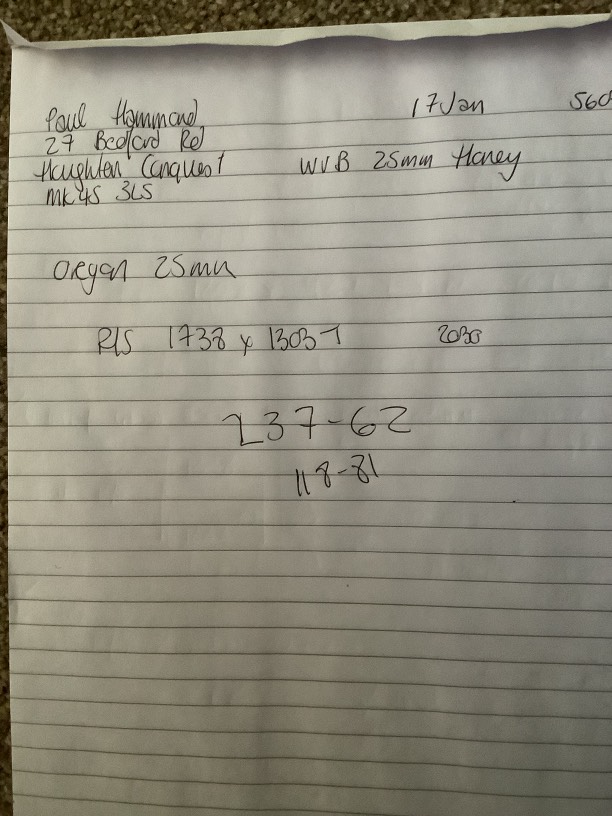 Paul Hammond 17 Jan 560
27 Bedford Rd
Haughten Conquest WVB 25mm Honey
MK45 3LS
Organ 25mm
R/S 1738 x 1303 2030
237-62
118-81